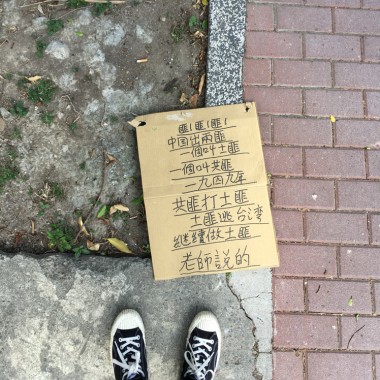 匪！匪！匪！
中国出兩匪
一個叫土匪
一個叫共匪
一九四九年
共匪打土匪
土匪逃台湾
継續做土匪
老師說的